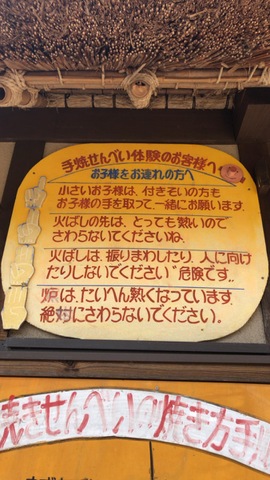 手焼せんべい体験のお客様へ
お子様をお連れの方へ
小さいお子様は、付きそいの方も
お子様の手を取って、一緒にお願います
火ばしの先は、とっても熱いので
さわらないでくださいね。
火ばしは、振りまわしたり、人に向け
たりしないでください"危険です。"
炉は、たいへん熱くなっています。
絶対にさわらないでください。
焼きせんべいの焼き方手順